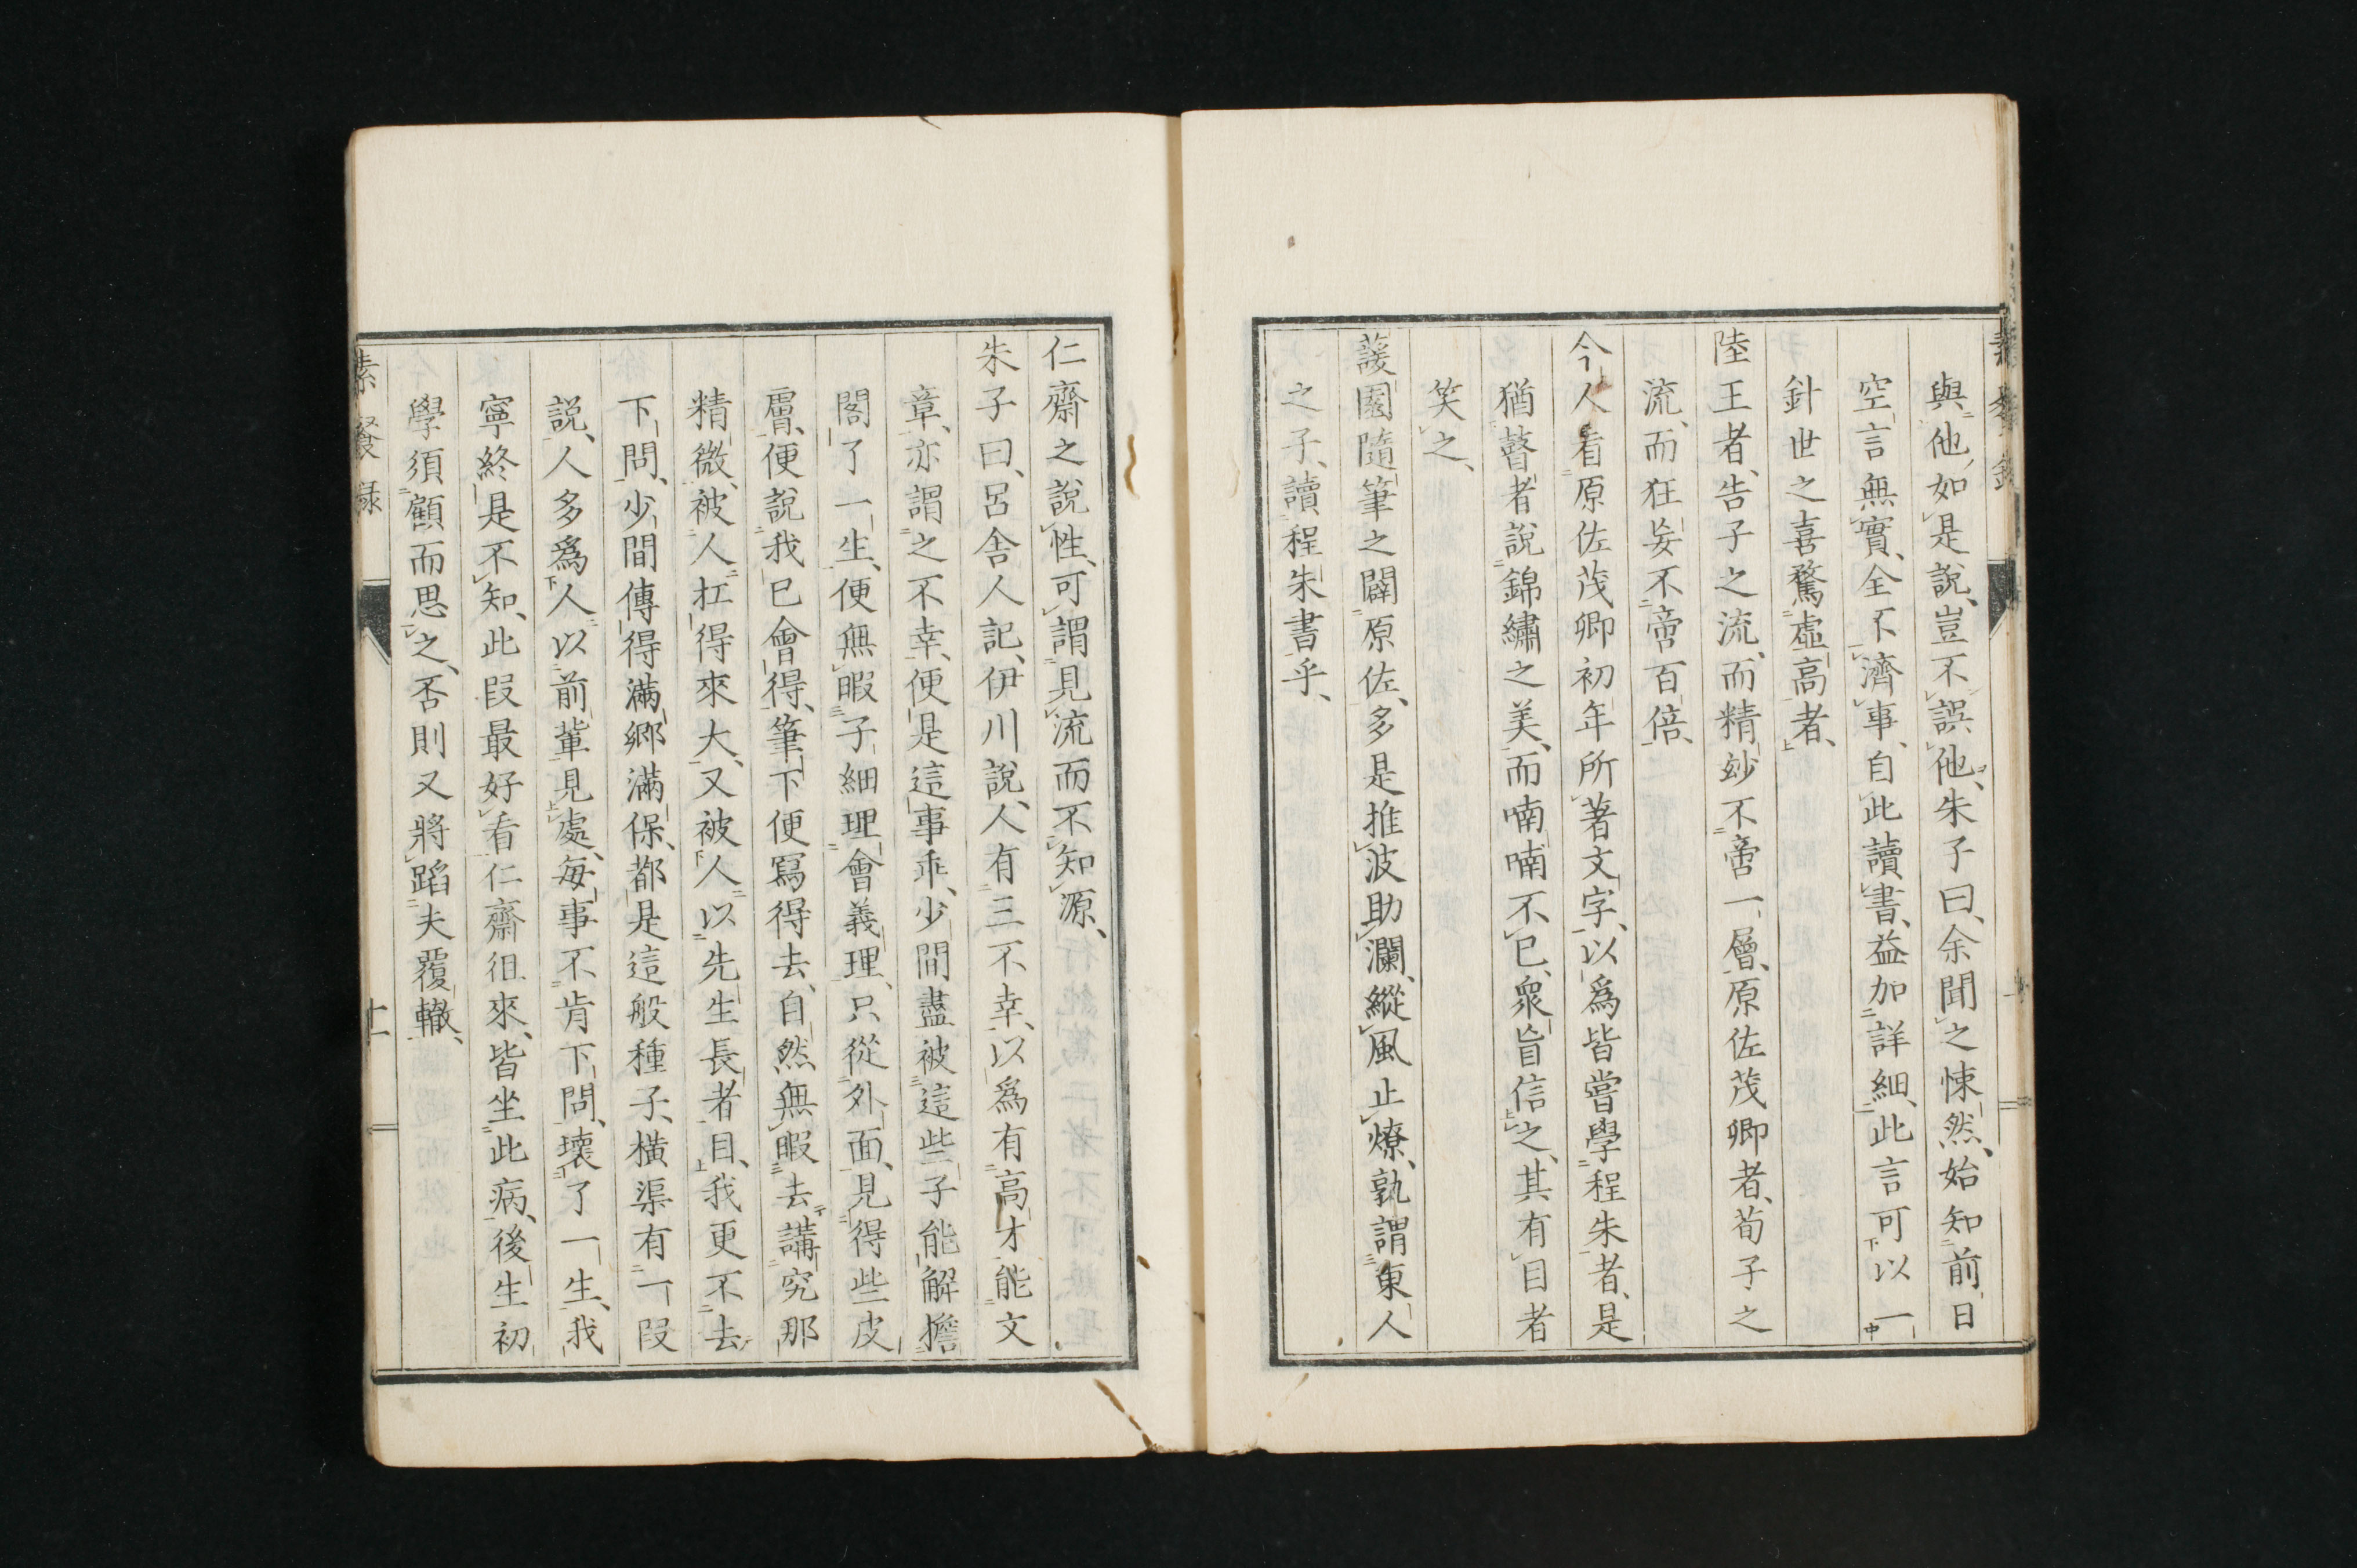 與他如是說、豈不誤他、朱子曰、余聞之悚然、始知前日
空言無實、全不濟事、自此讀書、益加詳細、此言可以一
針世之喜騖虛高者、
陸王者、告子之流、而精妙不啻一層、原佐茂卿者、荀子之
流、而狂妄不啻百倍、
今人看原佐茂卿初年所著文字、以爲皆嘗學程朱者、是
猶瞽者說錦繡之美、而喃喃不已、衆盲信之、其有目者
笑之、
蘐園隨筆之闢原佐、多是推波助瀾、縱風止燎、孰謂東人
之子、讀程朱書乎、
仁齋之說性、可謂見流而不知源、
朱子曰、呂舍人記、伊川說、人有三不幸、以爲有高才能文
章、亦謂之不幸、便是這事乖、少間盡被這些子能解擔
閣了一生、便無暇子細理會義理、只從外面、見得些皮
膚、便說我已會得、筆下便寫得去、自然無暇去講究那
精微、被人扛得來大、又被人以先生長者目、我更不去
下問、少間傳得滿鄉滿保、都是這般種子、橫渠有一段
說、人多爲人以前輩見處、每事不肯下問、壞了一生、我
寧終是不知、此段最好看仁齋徂來、皆坐此病、後生初
學須顧而思之、否則又將蹈夫覆轍、
素餐錄
十一